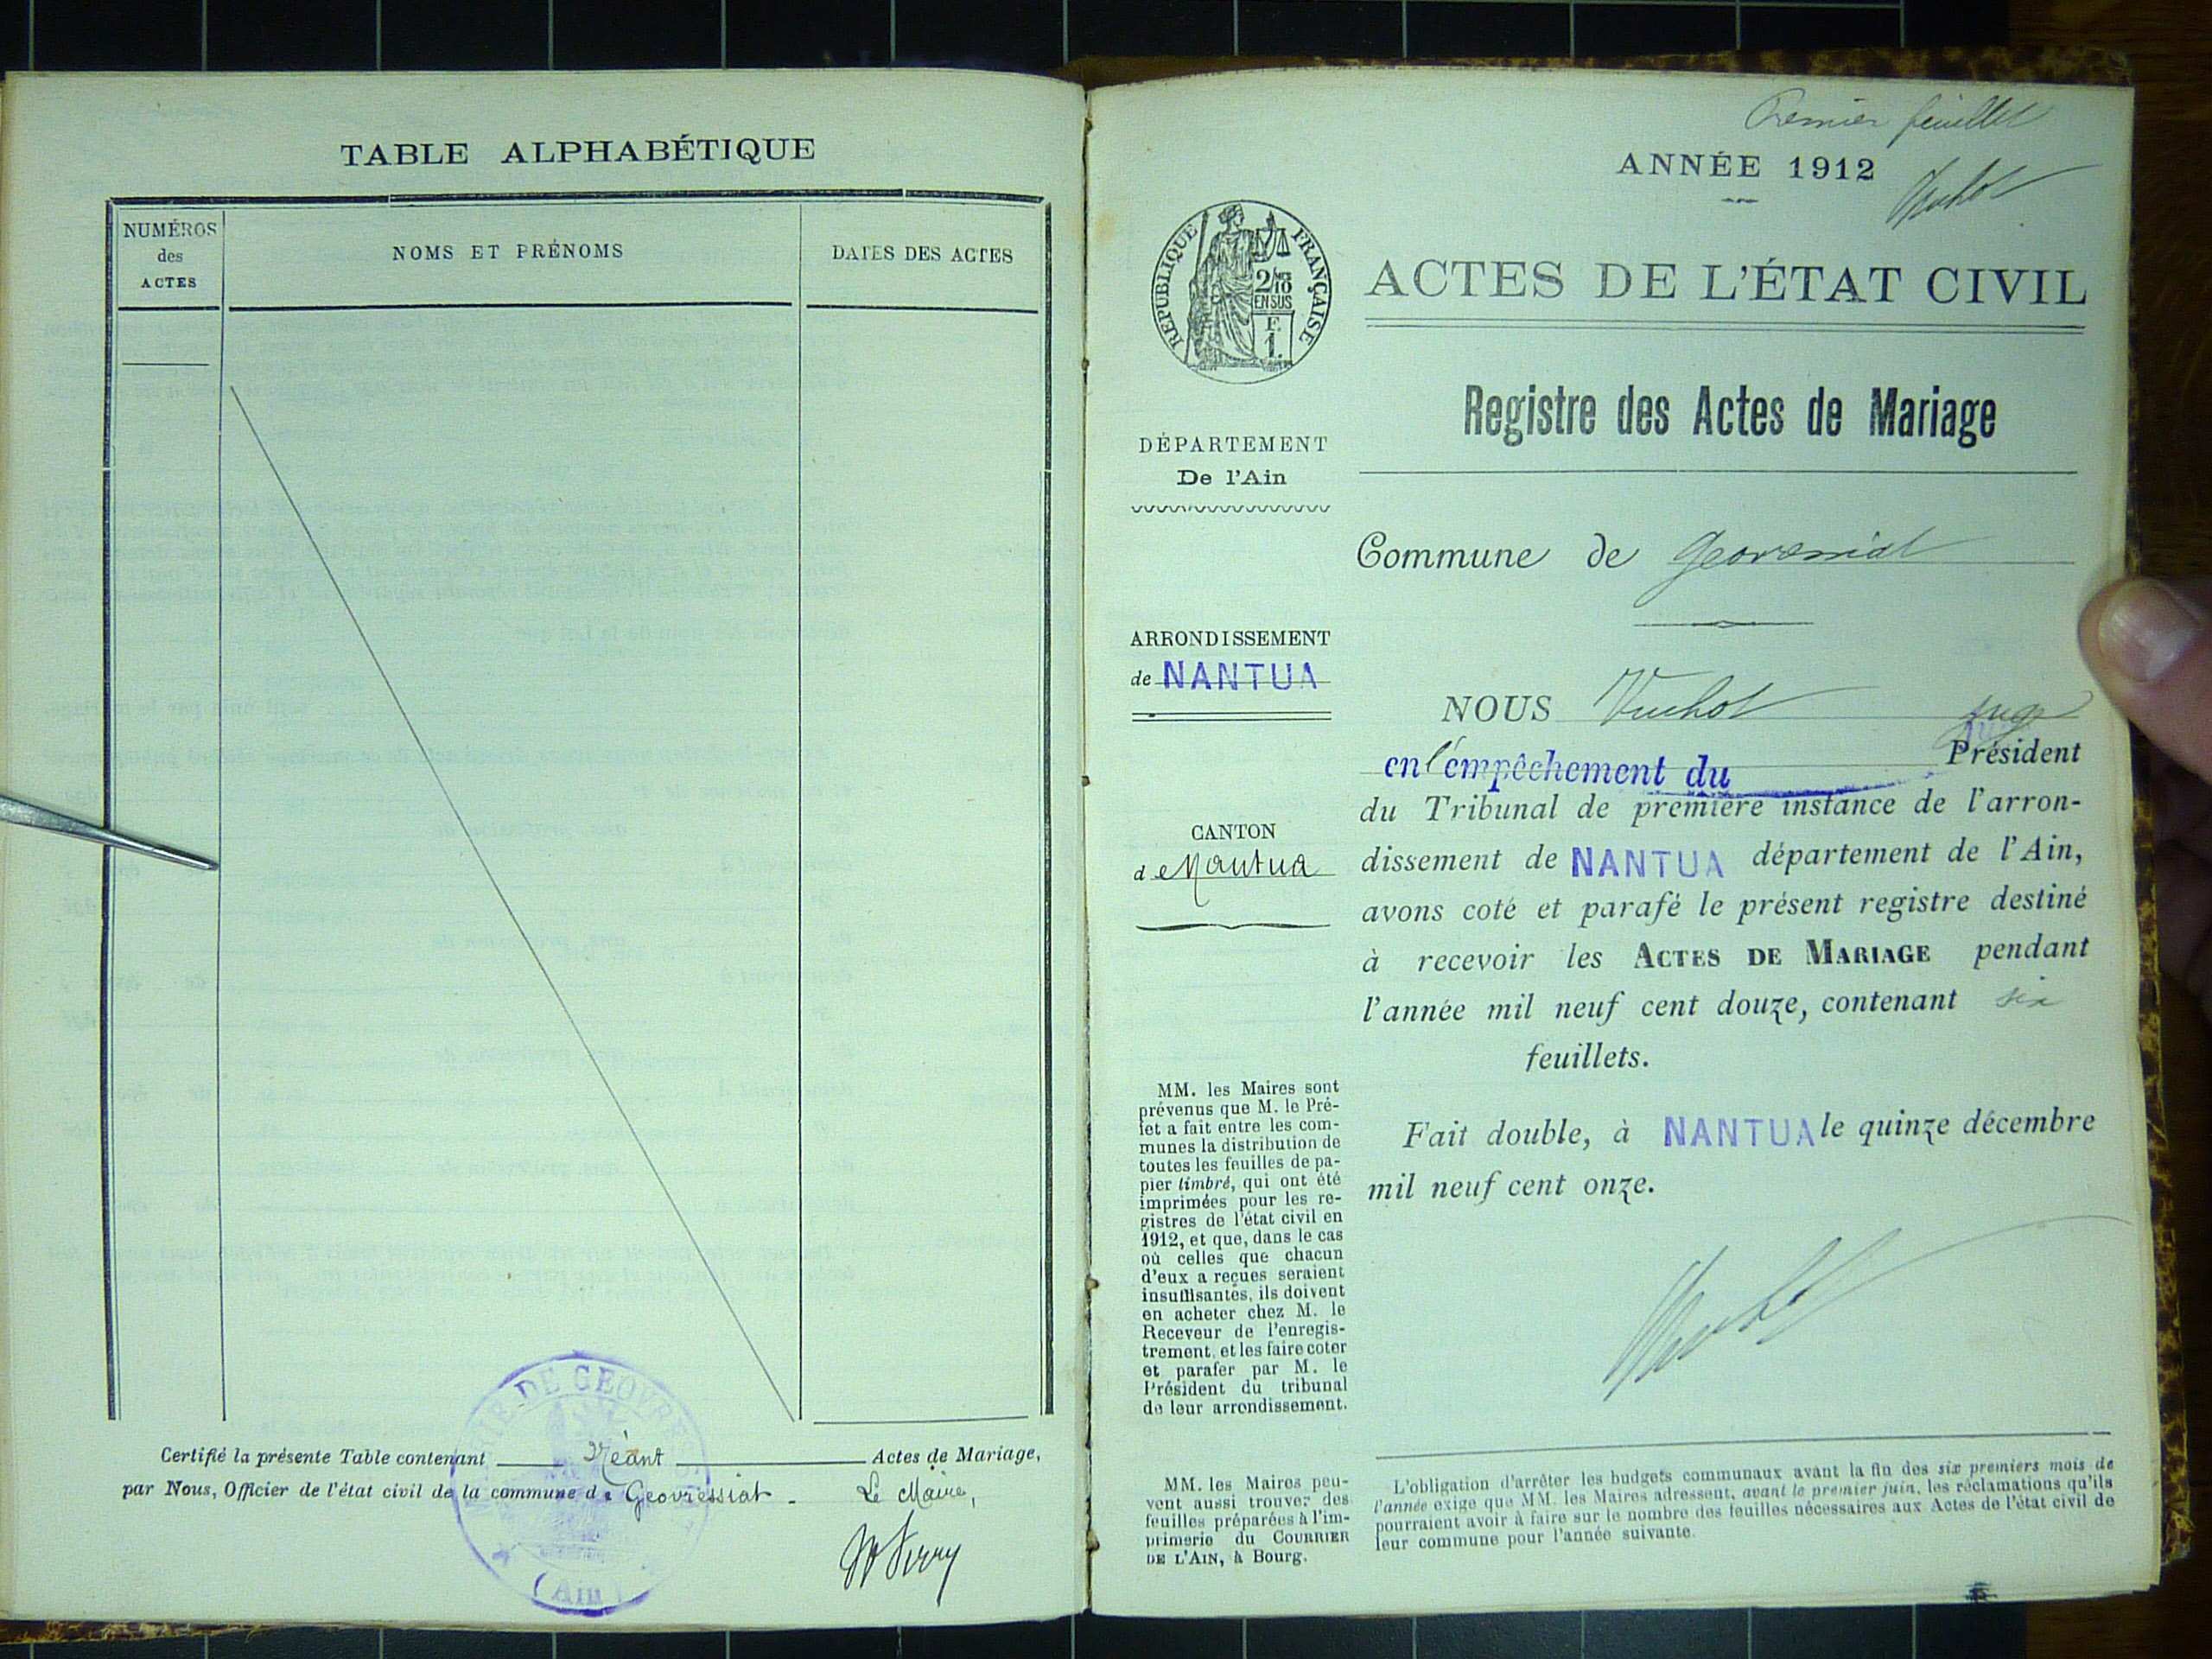 TABLE ALPHABÉTIQUE
NUMÉROS
des
ACTES
NOMS ET PRÉNOMS
DATES DES ACTES
MAIRIE DE GEOVRESSIAT
(Ain)
Certifié la présente Table contenant Néant Actes de Mariage,
par Nous, Officier de l'état civil de la commune de Geovressiat.
Le Maire,
Premier feuillet
ANNÉE 1912
RÉPUBLIQUE FRANÇAISE
2/10
EN SUS
F.
1.
ACTES DE L'ÉTAT CIVIL
Registre des Actes de Mariage
DÉPARTEMENT
De l'Ain
Commune de Geovressiat
ARRONDISSEMENT
de NANTUA
CANTON
de Nantua
NOUS Vuchot juge
en l'empêchement du Président
du Tribunal de première instance de l'arron-
dissement de NANTUA département de l'Ain,
avons coté et parafé le présent registre destiné
à recevoir les ACTES DE MARIAGE pendant
l'année mil neuf cent douze, contenant six
feuillets.
Fait double, à NANTUA le quinze décembre
mil neuf cent onze.
MM. les Maires sont
prévenus que M. le Pré-
fet a fait entre les com-
munes la distribution de
toutes les feuilles de pa-
pier timbré, qui ont été
imprimées pour les re-
gistres de l'état civil en
1912, et que, dans le cas
où celles que chacun
d'eux a reçues seraient
insuffisantes, ils doivent
en acheter chez M. le
Receveur de l'enregis-
trement, et les faire coter
et parafer par M. le
Président du tribunal
de leur arrondissement.
MM. les Maires peu-
vent aussi trouver des
feuilles préparées à l'im-
primerie du COURRIER
DE L'AIN, à Bourg.
L'obligation d'arrêter les budgets communaux avant la fin des six premiers mois de
l'année exige que MM. les Maires adressent, avant le premier juin, les réclamations qu'ils
pourraient avoir à faire sur le nombre des feuilles nécessaires aux Actes de l'état civil de
leur commune pour l'année suivante.